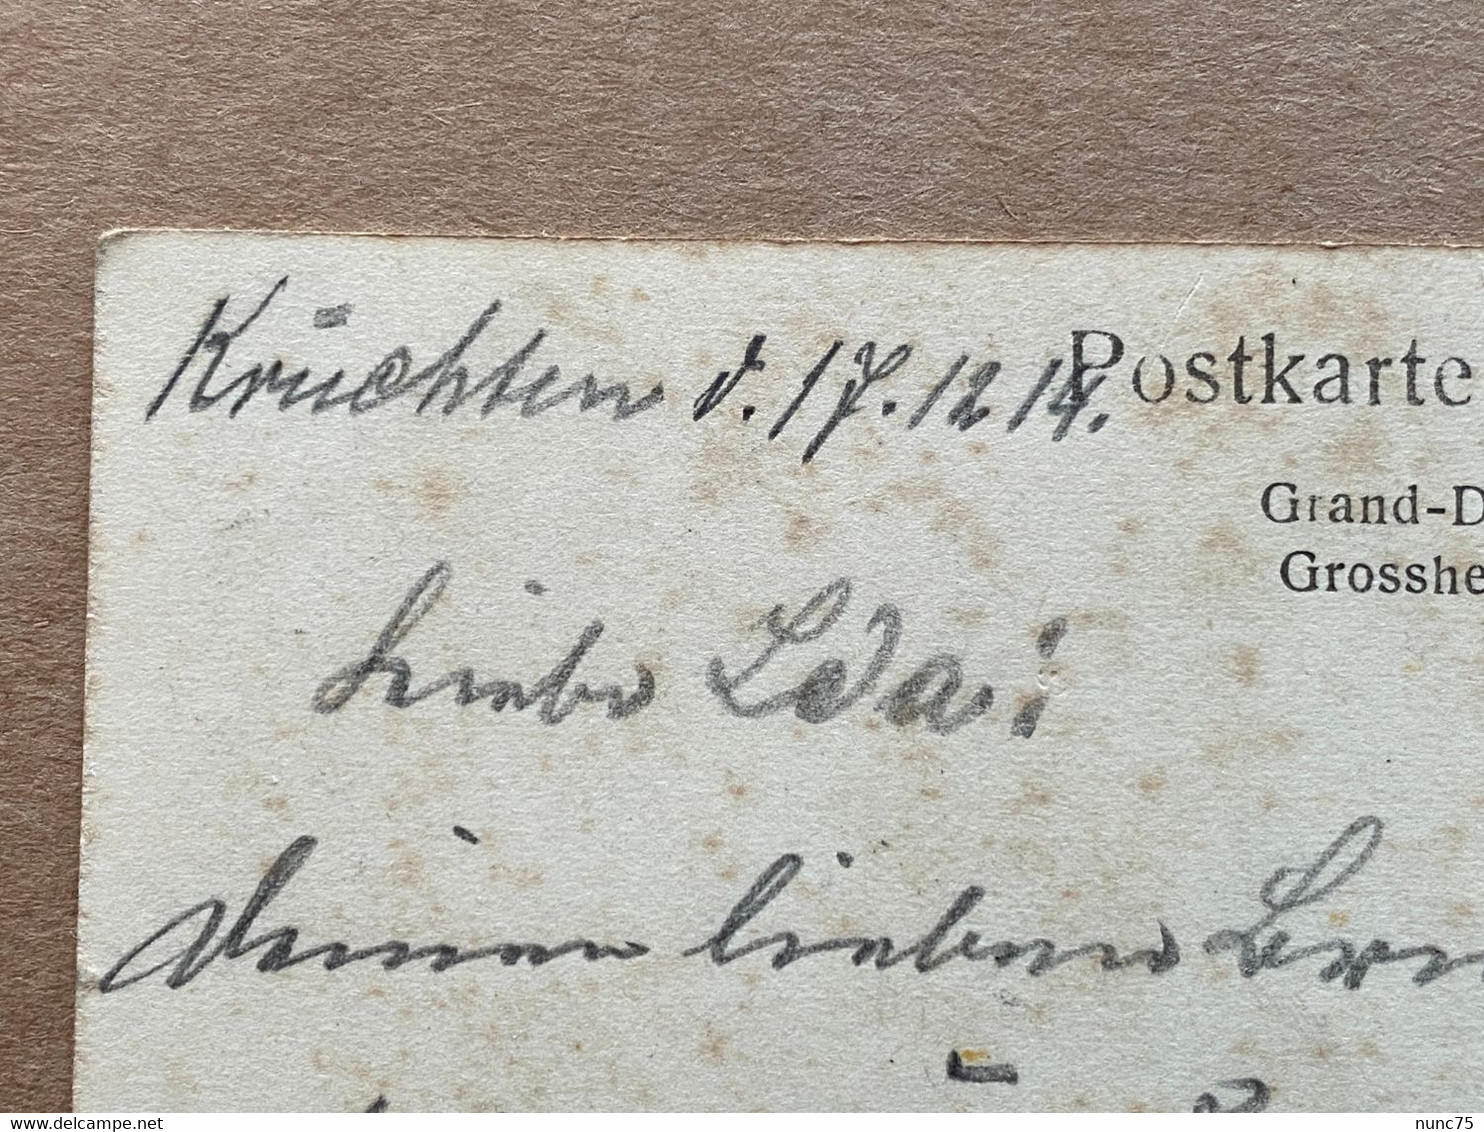 Krüchten d. 17.12 14.
Postkarte
Grand-D
Grosshe
Liebe Ida!
Deinen lieben
nunc75